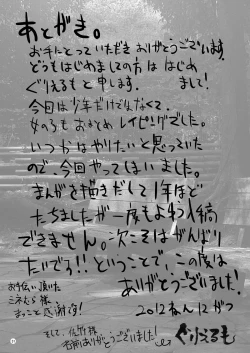 あとがき。
お手にとっていただきありがとうございます。
どうもはじめましての方は はじめ
まして!
ぐりえるもと申します。
今回は少年だけでなくて、
女の子もおまとめレイピングでした。
いつかはやりたいと思っていた
ので、今回やってしまいました。
まんがを描きだして1年ほど
たちましたが一度もよゆう入稿
できません。次こそはがんばり
たいです!!ということで、この度は
ありがとうございました!
お手伝い頂いた
様
まっこと感謝!
2012ねん12がつ
そして、佐竹様
お前ありがとうございました!
ぐりえるも